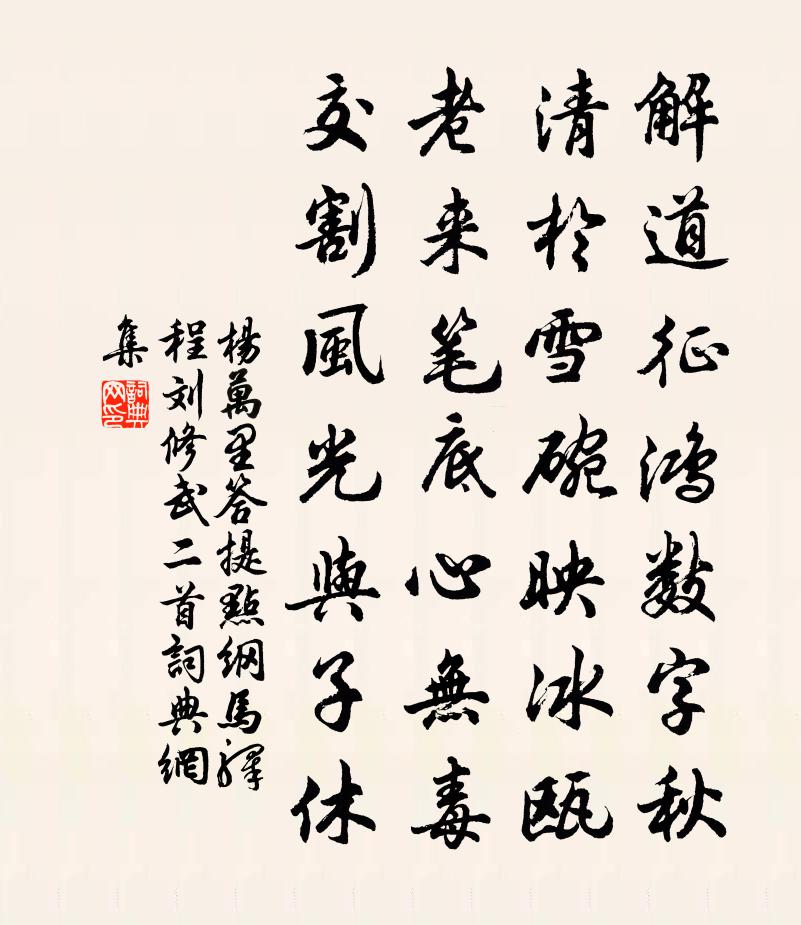 解道征鴻數字秋
清於雪碗映冰甌
老来笔底心無毒
交割風光與子休
楊萬里答提點綱馬驛
程刘修武二首詞典網
集
詞典
网印